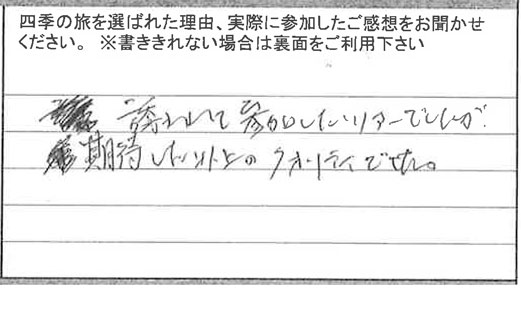 四季の旅を選ばれた理由、実際に参加したご感想をお聞かせ
ください。 ※書ききれない場合は裏面をご利用下さい
誘われて参加したツアーでしたが、
期待した以上のクオリティでした。